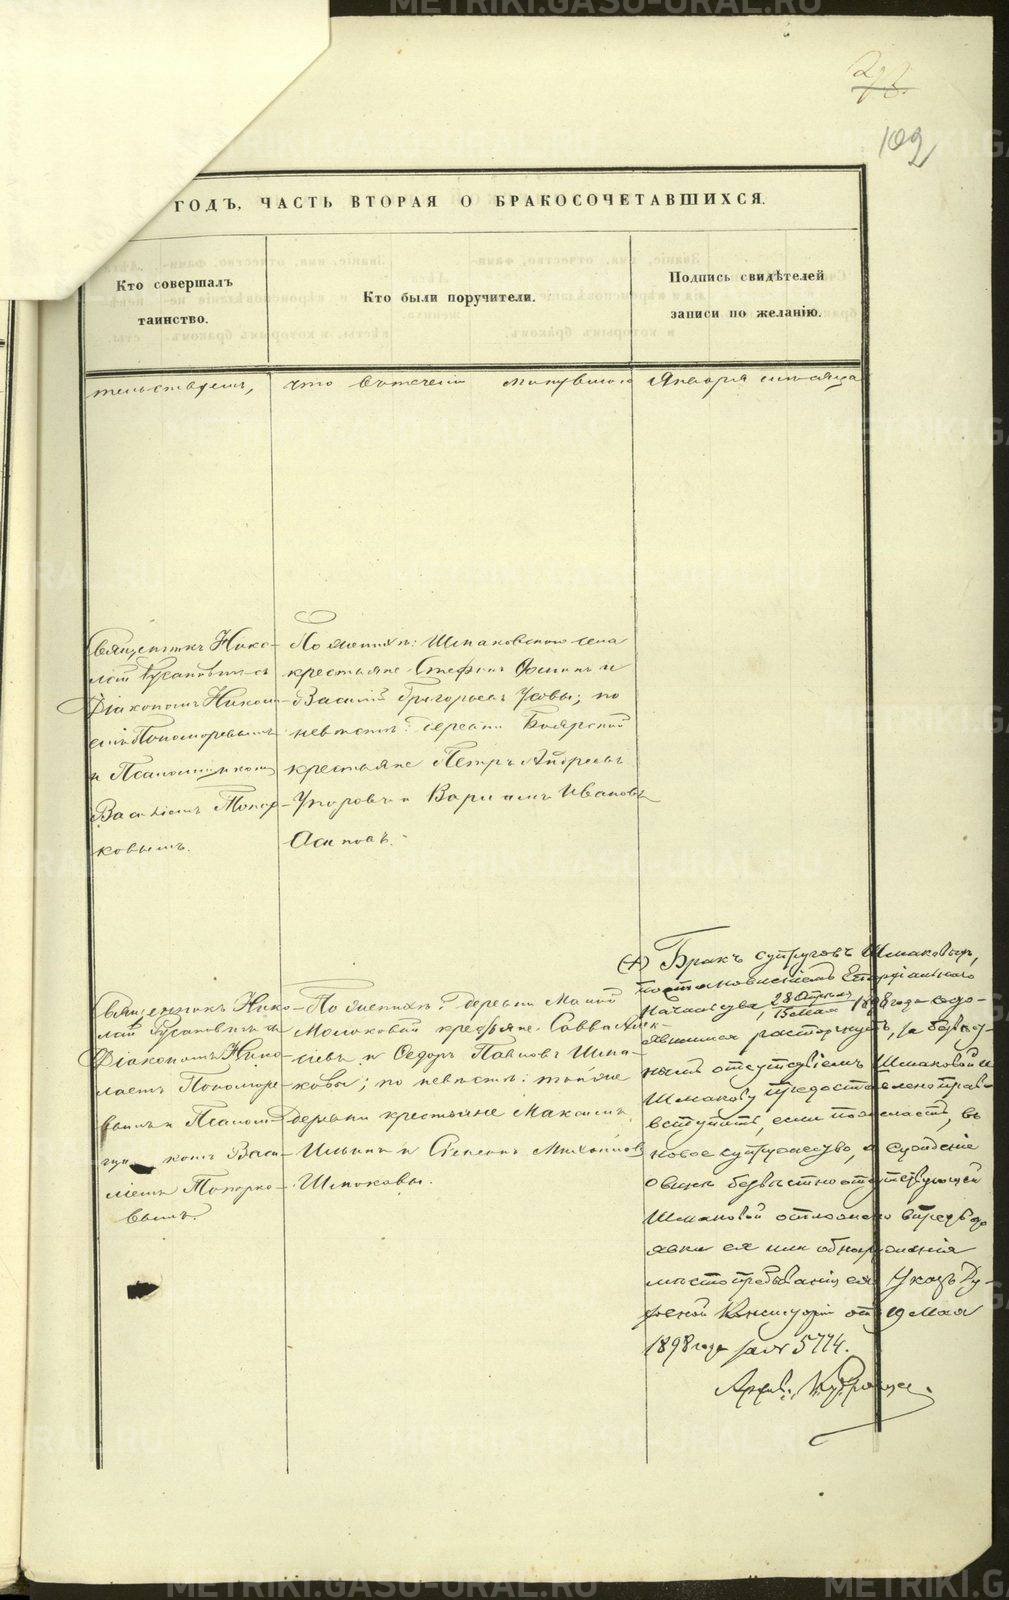 102
ГОДЪ, ЧАСТЬ ВТОРАЯ О БРАКОСОЧЕТАВШИХСЯ.
Кто совершалъ
таинство.
Кто были поручители.
Подпись свидѣтелей
записи по желанію.
что въ течении минувшаго Января мѣсяца
Священникъ Нико-
лай Русановъ съ
Діакономъ Никола-
емъ Пономаревымъ
и Псаломщикомъ
Василіемъ Топор-
ковымъ.
По женихѣ: Шмаковскаго села
крестьяне Стефанъ Фоминъ и
Василій Григорьевъ Усовы; по
невѣстѣ: деревни Боярской
крестьяне Петръ Андреевъ
Упоровъ и Иванов
Осиповъ.
Священникъ Нико-
лай Русановъ съ
Діакономъ Нико-
лаемъ Пономаре-
вымъ и Псалом-
щикомъ Васи-
ліемъ Топорко-
вымъ.
По женихѣ: деревни Малой
Молоковой крестьяне Савва Алек-
сѣевъ и Ѳедоръ Павловъ Шма-
ковы; по невѣстѣ: той же
деревни крестьяне Максимъ
Ильинъ и Стефанъ Михайловъ
Шмаковы.
(+) Бракъ супруговъ Шмаковыхъ,
постановленіемъ Епархіальнаго
Начальства, 28 Апрѣля
8 Мая 1898 года состо-
явшимся расторгнутъ, за безвѣст-
нымъ отсутствіемъ Шмаковой и
Шмакову предоставлено право
вступить, если пожелаетъ, въ
новое супружество, а сужденіе
о винѣ безвѣстно отсутствующей
Шмаковой отложено впредь до
явки ея или обнаруженія
мѣстопребыванія ея. Указъ Ду-
ховной Консисторіи отъ 19 Мая
1898 года за № 5774.